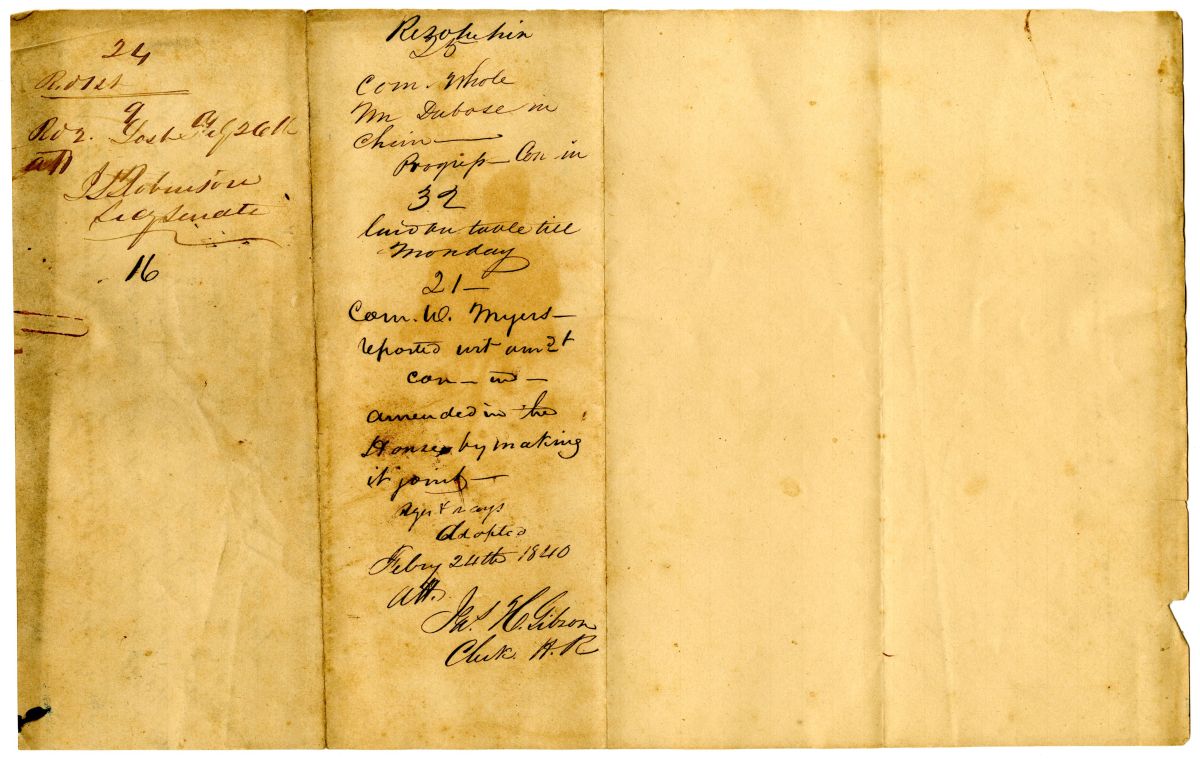 24
R. d 1st
Rd 2. & Lost Feby 26th
att
Robinson
Secy Senate
16
Resolution
25
Com. Whole
Mr Dubose in
Chair —
Progress — Con in
32
laid on table till
Monday
21 —
Com. W. Myers —
reported wit amdt
con — in —
amended in the
House by making
it joint —
Ayes & nays
adopted
Febry 24th 1840
att.
Jas H. Gibson
Clerk. H. R